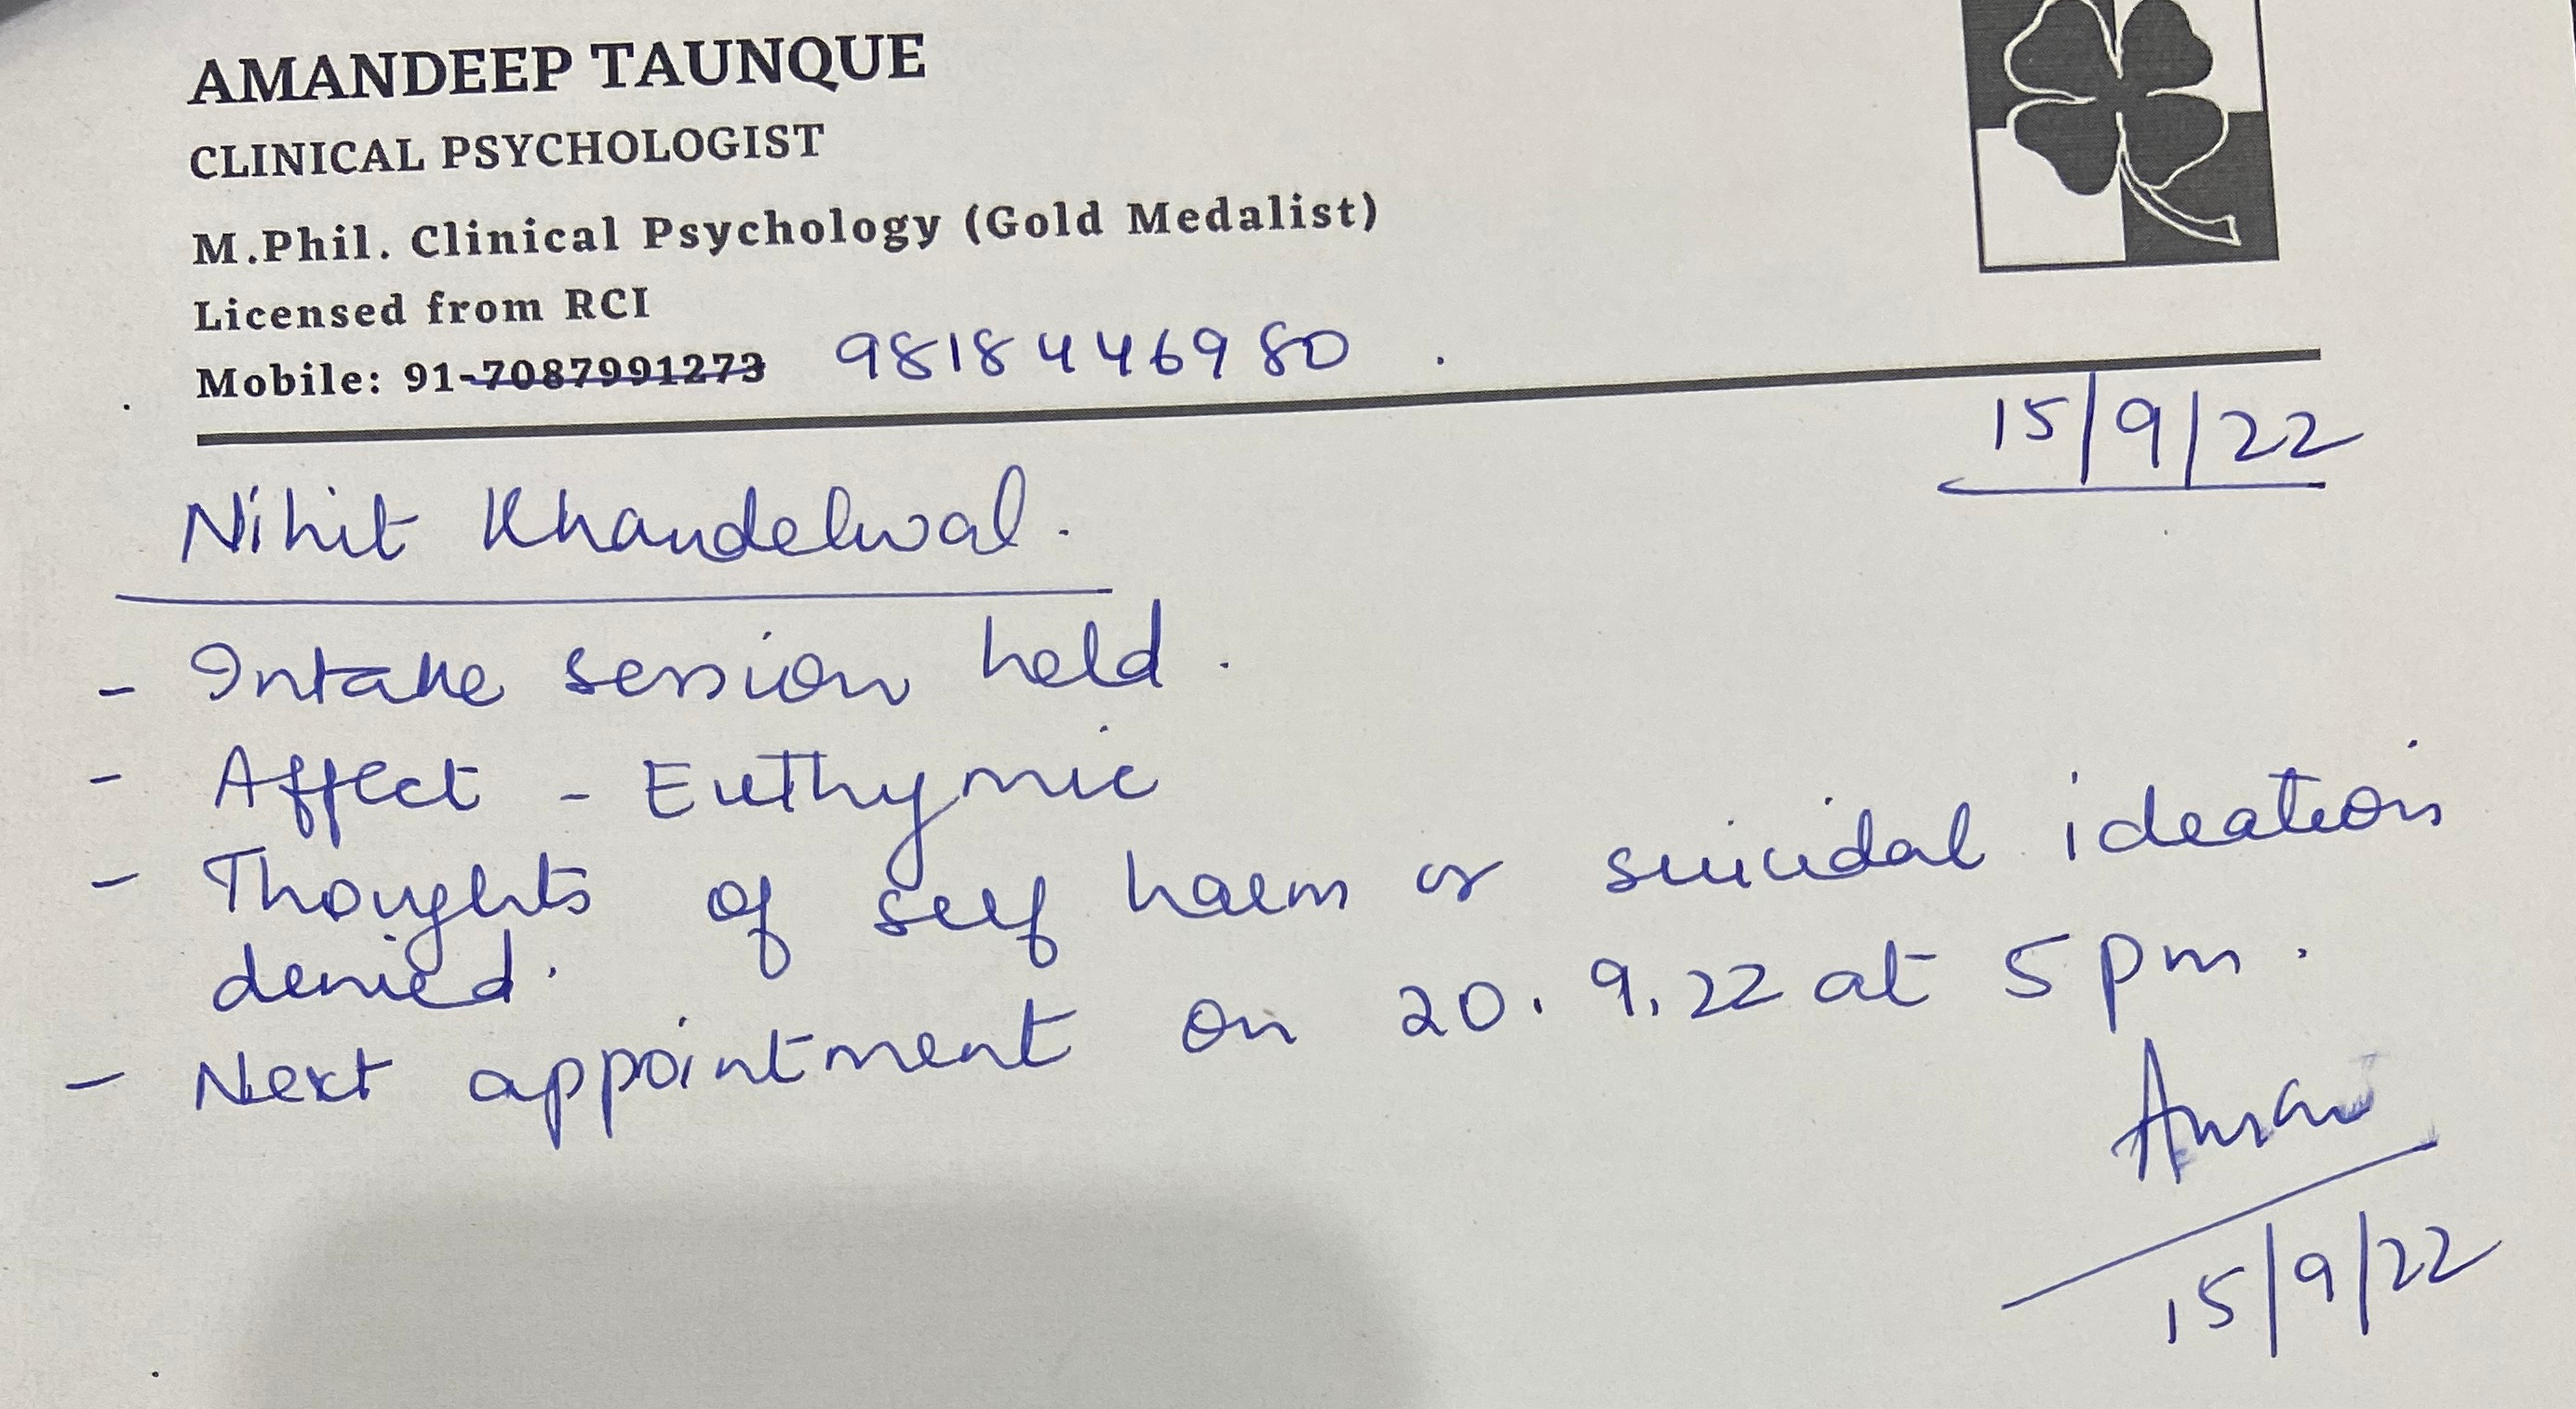 AMANDEEP TAUNQUE
CLINICAL PSYCHOLOGIST
M.Phil. Clinical Psychology (Gold Medalist)
Licensed from RCI
Mobile: 91-7087991273 9818446980
15/9/22
Nihit Khandelwal.
- Intake session held.
- Affect - Euthymic
- Thoughts of self harm or suicidal ideation
denied.
- Next appointment on 20.9.22 at 5 pm.
Aman
15/9/22